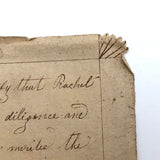 fy that Rachel
diligence and
merited the